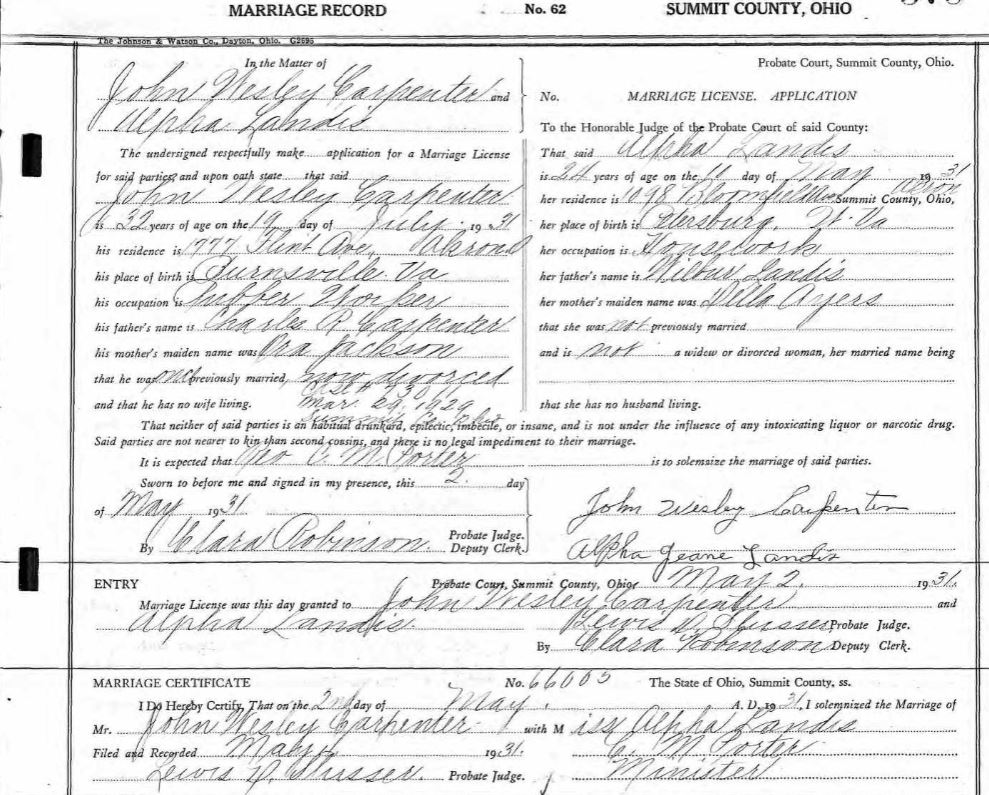 MARRIAGE RECORD No. 62 SUMMIT COUNTY, OHIO
The Johnson & Watson Co., Dayton, Ohio. G2595
In the Matter of
John Wesley Carpenter and
Alpha Landis
The undersigned respectfully make application for a Marriage License
for said parties, and upon oath state that said
John Wesley Carpenter
is 32 years of age on the 19 day of July 1931
his residence is 1777 Flint Ave, Akron
his place of birth is Burnsville Va
his occupation is Rubber Worker
his father's name is Charles R Carpenter
his mother's maiden name was Ora Jackson
that he was once previously married, now divorced
and that he has no wife living. Mar. 29, 1929
Summit Co. Ohio
Probate Court, Summit County, Ohio.
No. MARRIAGE LICENSE. APPLICATION
To the Honorable Judge of the Probate Court of said County:
That said Alpha Landis
is 24 years of age on the day of May 1931
her residence is 1098 Akron Summit County, Ohio,
her place of birth is Petersburg, W. Va
her occupation is Housework
her father's name is Wilbur Landis
her mother's maiden name was Della Ayers
that she was not previously married
and is not a widow or divorced woman, her married name being
that she has no husband living.
That neither of said parties is an habitual drunkard, epilectic, imbecile, or insane, and is not under the influence of any intoxicating liquor or narcotic drug.
Said parties are not nearer to kin than second cousins, and there is no legal impediment to their marriage.
It is expected that Geo C. M. Porter is to solemnize the marriage of said parties.
Sworn to before me and signed in my presence, this 2 day
of May 1931.
By Clara Robinson. Probate Judge. Deputy Clerk.
John Wesley Carpenter
Alpha Jeane Landis
ENTRY Probate Court, Summit County, Ohio, May 2. 1931.
Marriage License was this day granted to John Wesley Carpenter and
Alpha Landis Lewis D. Slusser Probate Judge.
By Clara Robinson Deputy Clerk.
MARRIAGE CERTIFICATE No. 66005 The State of Ohio, Summit County, ss.
I Do Hereby Certify, That on the 2nd day of May. A. D. 1931, I solemnized the Marriage of
Mr. John Wesley Carpenter with Miss Alpha Landis
Filed and Recorded May 1931. C. M. Porter
Lewis D. Slusser. Probate Judge. Minister